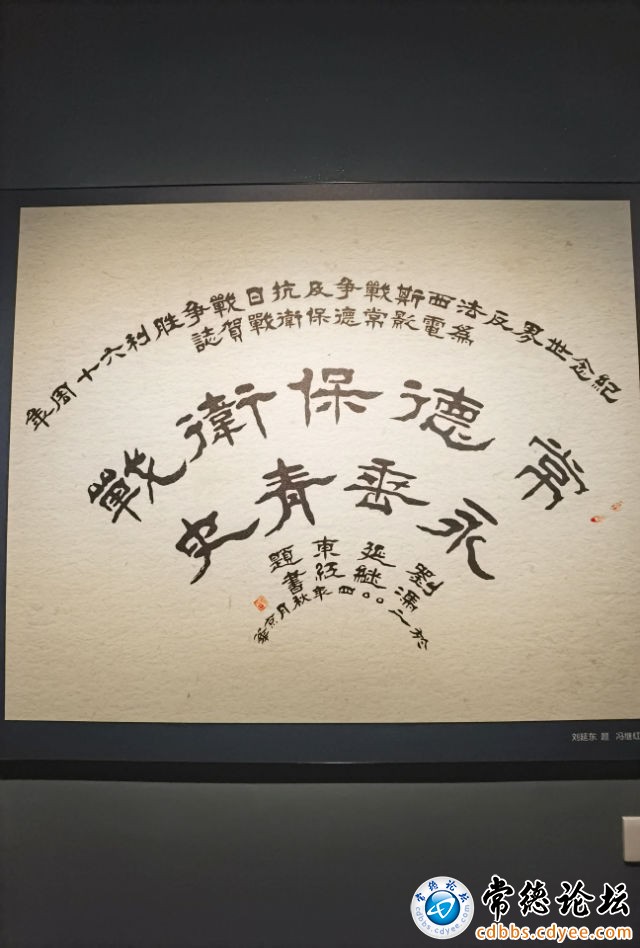 紀念世界反法西斯戰争及抗日戰争胜利六十周年
為電影常德保衛戰賀誌
常德保衛戰
永垂青史
劉延東題
馮継红書
於二〇〇四年秋月京華
刘延东 题 冯继红
常德论坛
常德论坛
cdbbs.cdyee.com
cdbbs.cdyee.com